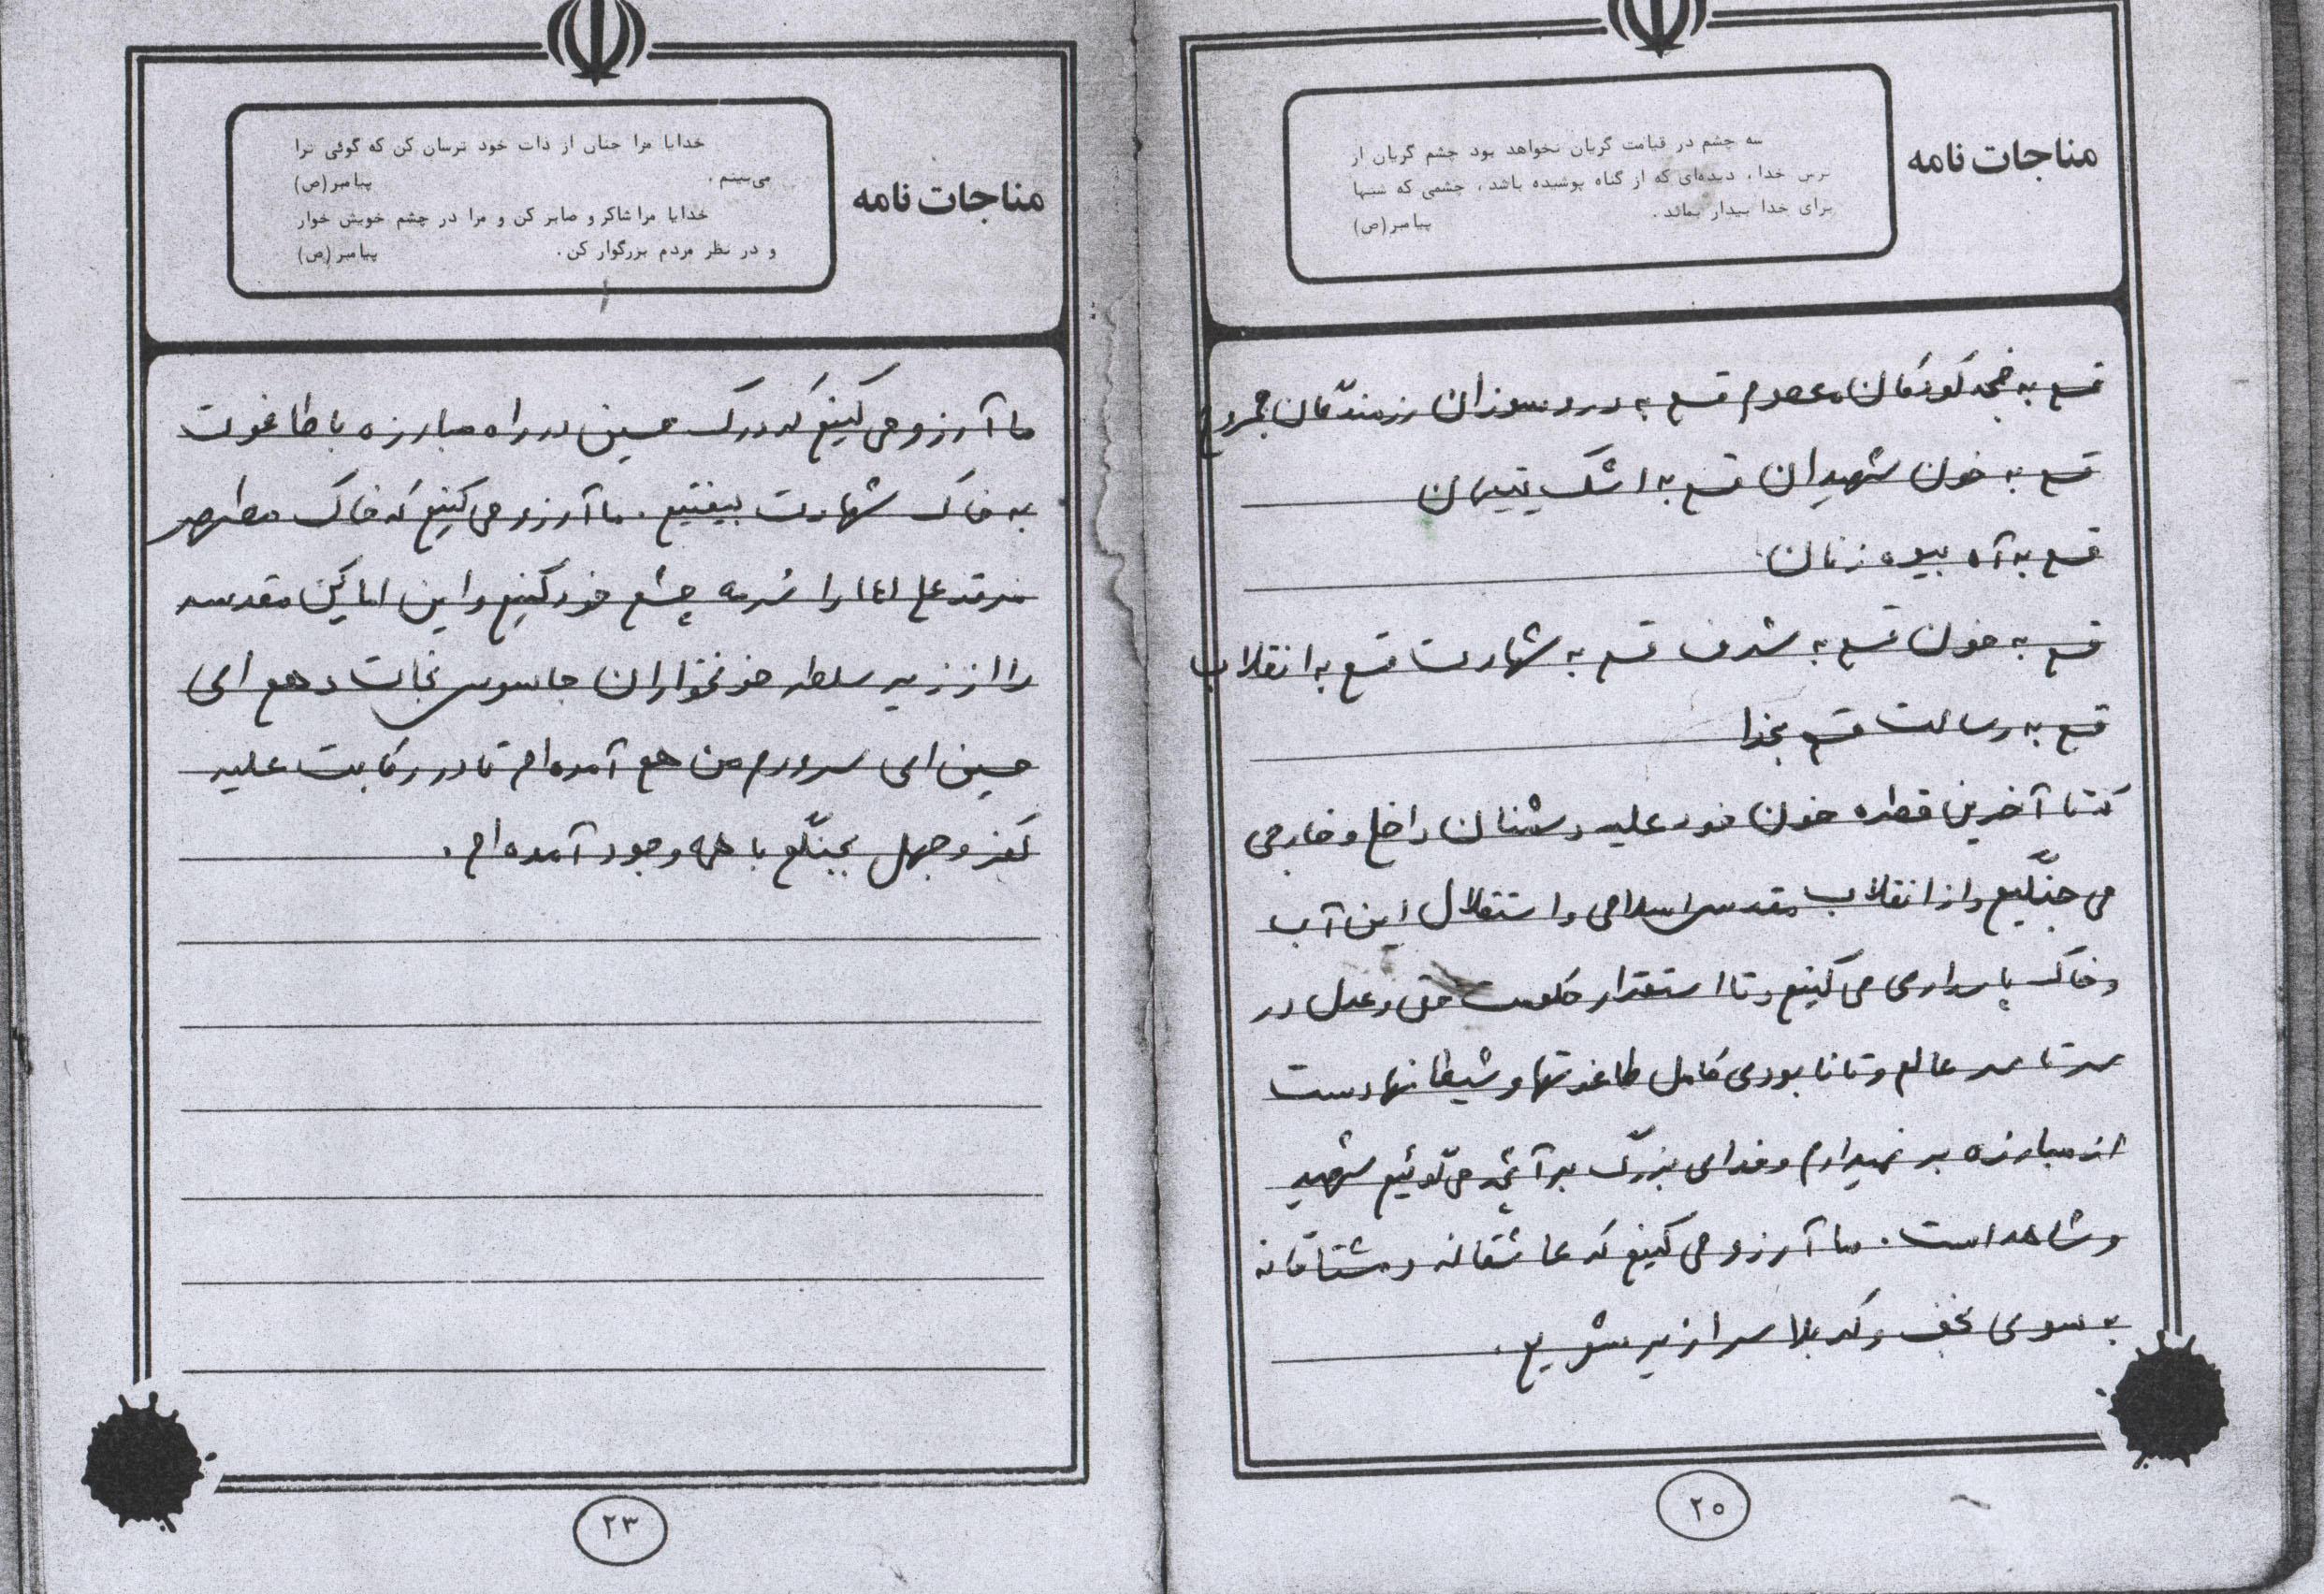 مناجات نامه
سه چشم در قیامت گریان نخواهد بود چشم گریان از
ترس خدا، دیده‌ای که از گناه پوشیده باشد، چشمی که شبها
برای خدا بیدار بماند.
پیامبر (ص)
قسم به ضجه کودکان معصوم قسم به درد سوزان رزمندگان مجروح
قسم به خون شهیدان قسم به اشک یتیمان
قسم به آه بیوه زنان
قسم به خون قسم به شرف قسم به شهادت قسم به انقلاب
قسم به رسالت قسم بخدا
که تا آخرین قطره خون خود علیه دشمنان داخلی و خارجی
می جنگیم و از انقلاب مقدس اسلامی و استقلال این آب
و خاک پاسداری می کنیم و تا استقرار حکومت حق و عدل در
سرتاسر عالم و تا نابودی کامل طاغوتها و شیطانها دست
از مبارزه بر نمیدارم و خدای بزرگ بر آنچه می گوئیم شهید
و شاهد است. ما آرزو می کنیم که عاشقانه و مشتاقانه
به سوی نجف و کربلا سرازیر شویم.
۲۵
مناجات نامه
خدایا مرا چنان از ذات خود ترسان کن که گوئی ترا
می‌بینم.
پیامبر (ص)
خدایا مرا شاکر و صابر کن و مرا در چشم خویش خوار
و در نظر مردم بزرگوار کن.
پیامبر (ص)
ما آرزو می کنیم که در رک حسین در راه مبارزه با طاغوت
به خاک شهادت بیفتیم. ما آرزو می کنیم که خاک مطهر
مرقد علی را سُرمه چشم خود کنیم و این اماکن مقدسه
را از زیر سلطه خونخواران جاسوس نجات دهم ای
حسین ای سرورم من هم آمده ام تا در رکابت علیه
کفر و جهل بجنگم با همه وجود آمده ام.
۲۳